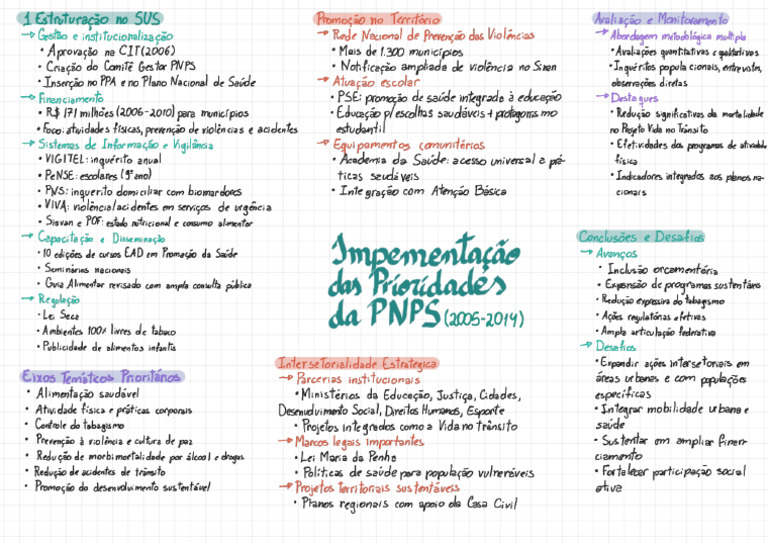 1 Estruturação no SUS
→ Gestão e institucionalização
• Aprovação no CIT(2006)
• Criação do Comitê Gestor PNPS
• Inserção no PPA e no Plano Nacional de Saúde
→ Financiamento
• R$ 171 milhões (2006-2010) para municípios
• Foco: atividades físicas, prevenção de violências e acidentes
→ Sistemas de Informação e Vigilância
• VIGITEL: inquérito anual
• PeNSE: escolares (9º ano)
• PNS: inquerito domiciliar com biomarcadores
• VIVA: violência/acidentes em serviços de urgência
• Sisvan e POF: estado nutricional e consumo alimentar
→ Capacitação e Disseminação
• 10 edições de cursos EAD em Promoção da Saúde
• Seminários nacionais
• Guia Alimentar revisado com ampla consulta pública
→ Regulação
• Lei Seca
• Ambientes 100% livres de tabaco
• Publicidade de alimentos infantis
Eixos Temáticos Prioritários
• Alimentação saudável
• Atividade física e práticas corporais
• Controle do tabagismo
• Prevenção à violência e cultura de paz
• Redução de morbimortalidade por álcool e drogas
• Redução de acidentes de trânsito
• Promoção do desenvolvimento sustentável
Promoção no Território
→ Rede Nacional de Prevenção das Violências
• Mais de 1.300 municípios
• Notificação ampliada de violência no Sinan
→ Atuação escolar
• PSE: promoção de saúde integrada à educação
• Educação p/ escolhas saudáveis + protagonismo
estudantil
→ Equipamentos comunitários
• Academia da Saúde: acesso universal a prá-
ticas saudáveis
• Integração com Atenção Básica
Impementação
das Prioridades
da PNPS (2005-2014)
Intersetorialidade Estratégica
→ Parcerias institucionais
• Ministérios da Educação, Justiça, Cidades,
Desenvolvimento Social, Direitos Humanos, Esporte
• Projetos integrados como a Vida no trânsito
→ Marcos legais importantes
• Lei Maria da Penha
• Políticas de saúde para população vulneráveis
→ Projetos territoriais sustentáveis
• Planos regionais com apoio da Casa Civil
Avaliação e Monitoramento
→ Abordagem metodológica multipla
• Avaliações quantitativas e qualitativas
• Inquéritos populacionais, entrevistas,
observações diretas
→ Destaques
• Redução significativa da mortalidade
no Projeto Vida no Trânsito
• Efetividades dos programas de atividade
física
• Indicadores integrados aos planos na-
cionais
Conclusões e Desafios
→ Avanços
• Inclusão orcamentária
• Expansão de programas sustentáveis
• Redução expressiva do tabagismo
• Ações regulatórias efetivas
• Ampla articulação federativa
→ Desafios
• Expandir ações intersetoriais em
áreas urbanas e com populações
especificas
• Integrar mobilidade urbana e
saúde
• Sustentar em ampliar finan-
ciamento
• Fortalecer participação social
ativa